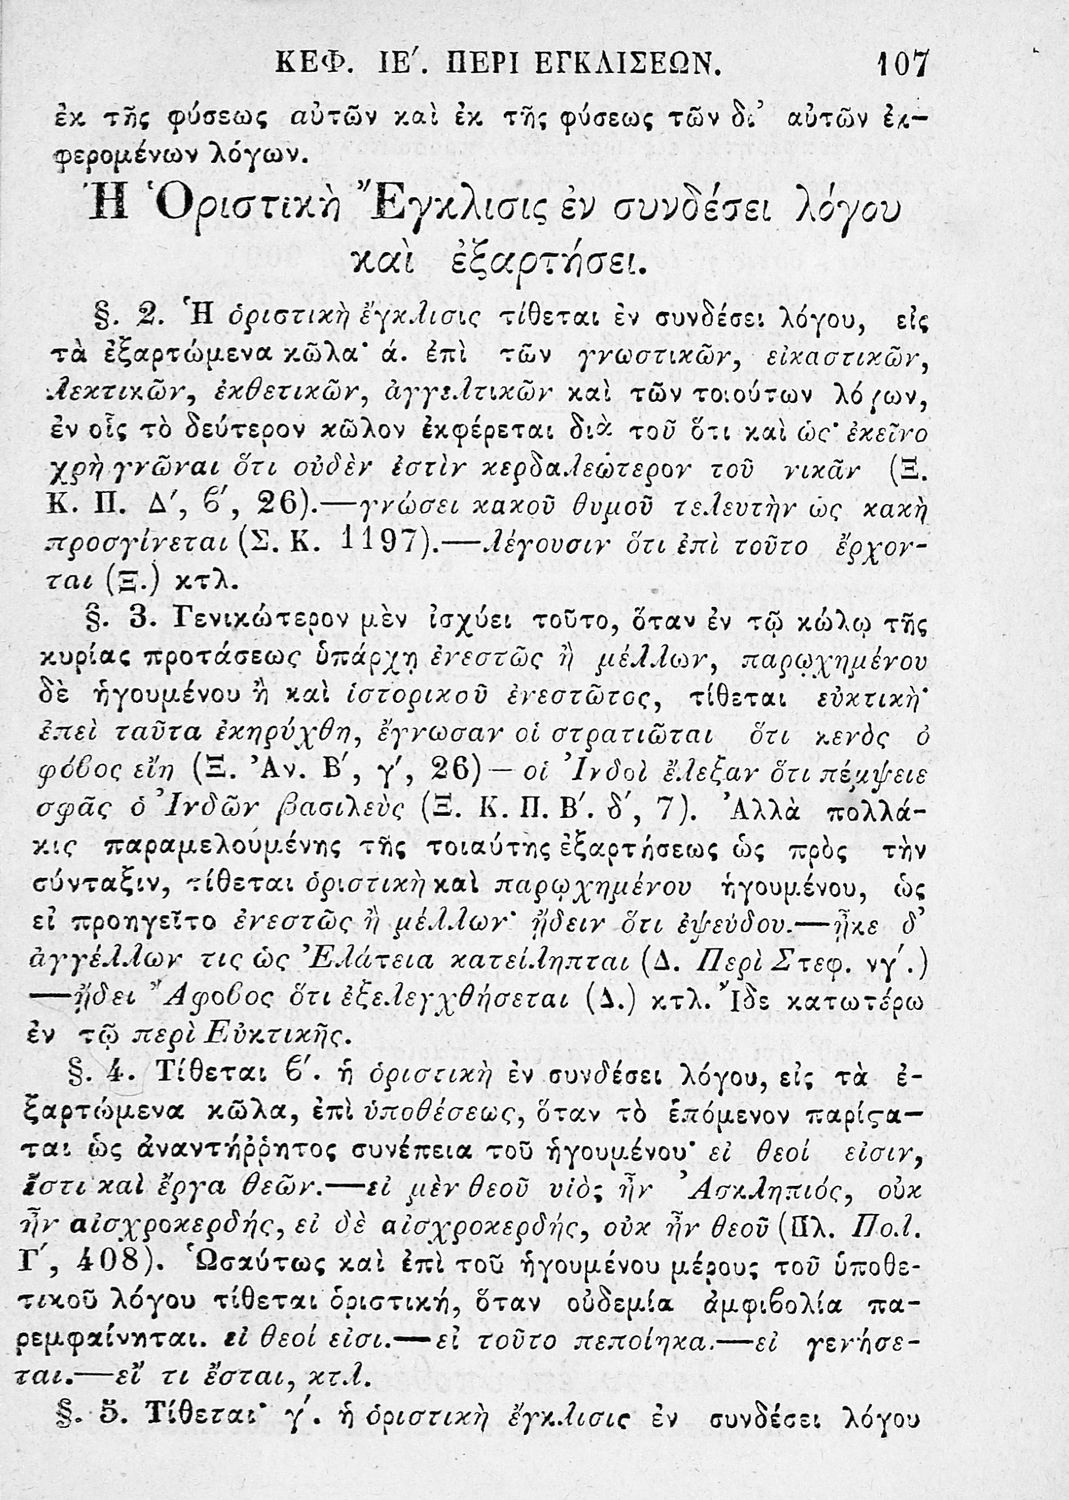 ΚΕΦ. ΙΕ΄. ΠΕΡΙ ΕΓΚΛΙΣΕΩΝ. 107
ἐκ τῆς φύσεως αὐτῶν καὶ ἐκ τῆς φύσεως τῶν δι᾽ αὐτῶν ἐκ-
φερομένων λόγων.
Ἡ Ὁριστικὴ Ἔγκλισις ἐν συνδέσει λόγου
καὶ ἐξαρτήσει.
§. 2. Ἡ ὁριστικὴ ἔγκλισις τίθεται ἐν συνδέσει λόγου, εἰς
τὰ ἐξαρτώμενα κῶλα· ά. ἐπὶ τῶν γνωστικῶν, εἰκαστικῶν,
λεκτικῶν, ἐκθετικῶν, ἀγγελτικῶν καὶ τῶν τοιούτων λόγων,
ἐν οἷς τὸ δεύτερον κῶλον ἐκφέρεται διὰ τοῦ ὅτι καὶ ὡς· ἐκεῖνο
χρὴ γνῶναι ὅτι οὐδὲν ἐστὶν κερδαλεώτερον τοῦ νικᾶν (Ξ.
Κ. Π. Δ΄, ϐ΄, 26).—γνώσει κακοῦ θυμοῦ τελευτὴν ὡς κακὴ
προσγίνεται (Σ. Κ. 1197).—λέγουσιν ὅτι ἐπὶ τοῦτο ἔρχον-
ται (Ξ.) κτλ.
§. 3. Γενικώτερον μὲν ἰσχύει τοῦτο, ὅταν ἐν τῷ κώλῳ τῆς
κυρίας προτάσεως ὑπάρχῃ ἐνεστῶς ἢ μέλλων, παρῳχημένου
δὲ ἡγουμένου ἢ καὶ ἱστορικοῦ ἐνεστῶτος, τίθεται εὐκτικὴ·
ἐπεὶ ταῦτα ἐκηρύχθη, ἔγνωσαν οἱ στρατιῶται ὅτι κενὸς ὁ
φόβος εἴη (Ξ. Ἀν. Β΄, γ΄, 26) — οἱ Ἰνδοὶ ἔλεξαν ὅτι πέμψειε
σφᾶς ὁ Ἰνδῶν βασιλεὺς (Ξ. Κ. Π. Β΄. δ΄, 7). Ἀλλὰ πολλά-
κις παραμελουμένης τῆς τοιαύτης ἐξαρτήσεως ὡς πρὸς τὴν
σύνταξιν, τίθεται ὁριστικὴ καὶ παρῳχημένου ἡγουμένου, ὡς
εἰ προηγεῖτο ἐνεστῶς ἢ μέλλων· ᾔδειν ὅτι ἐψεύδου.—ἧκε δ᾽
ἀγγέλλων τις ὡς Ἐλάτεια κατείληπται (Δ. Περὶ Στεφ. νγ΄.)
—ᾔδει Ἄφοβος ὅτι ἐξελεγχθήσεται (Δ.) κτλ. Ἴδε κατωτέρω
ἐν τῷ περὶ Εὐκτικῆς.
§. 4. Τίθεται ϐ΄. ἡ ὁριστικὴ ἐν συνδέσει λόγου, εἰς τὰ ἐ-
ξαρτώμενα κῶλα, ἐπὶ ὑποθέσεως, ὅταν τὸ ἑπόμενον παρίϛα-
ται ὡς ἀναντήῤῥητος συνέπεια τοῦ ἡγουμένου· εἰ θεοί εἰσιν,
ἔστι καὶ ἔργα θεῶν.—εἰ μὲν θεοῦ υἱὸς ἦν Ἀσκληπιός, οὐκ
ἦν αἰσχροκερδής, εἰ δὲ αἰσχροκερδής, οὐκ ἦν θεοῦ (Πλ. Πολ.
Γ΄, 408). Ὡσαύτως καὶ ἐπὶ τοῦ ἡγουμένου μέρους τοῦ ὑποθε-
τικοῦ λόγου τίθεται ὁριστική, ὅταν οὐδεμία ἀμφιϐολία πα-
ρεμφαίνηται. εἰ θεοί εἰσι.—εἰ τοῦτο πεποίηκα.—εἰ γενήσε-
ται.—εἴ τι ἔσται, κτλ.
§. 5. Τίθεται· γ΄. ἡ ὁριστικὴ ἔγκλισις ἐν συνδέσει λόγου